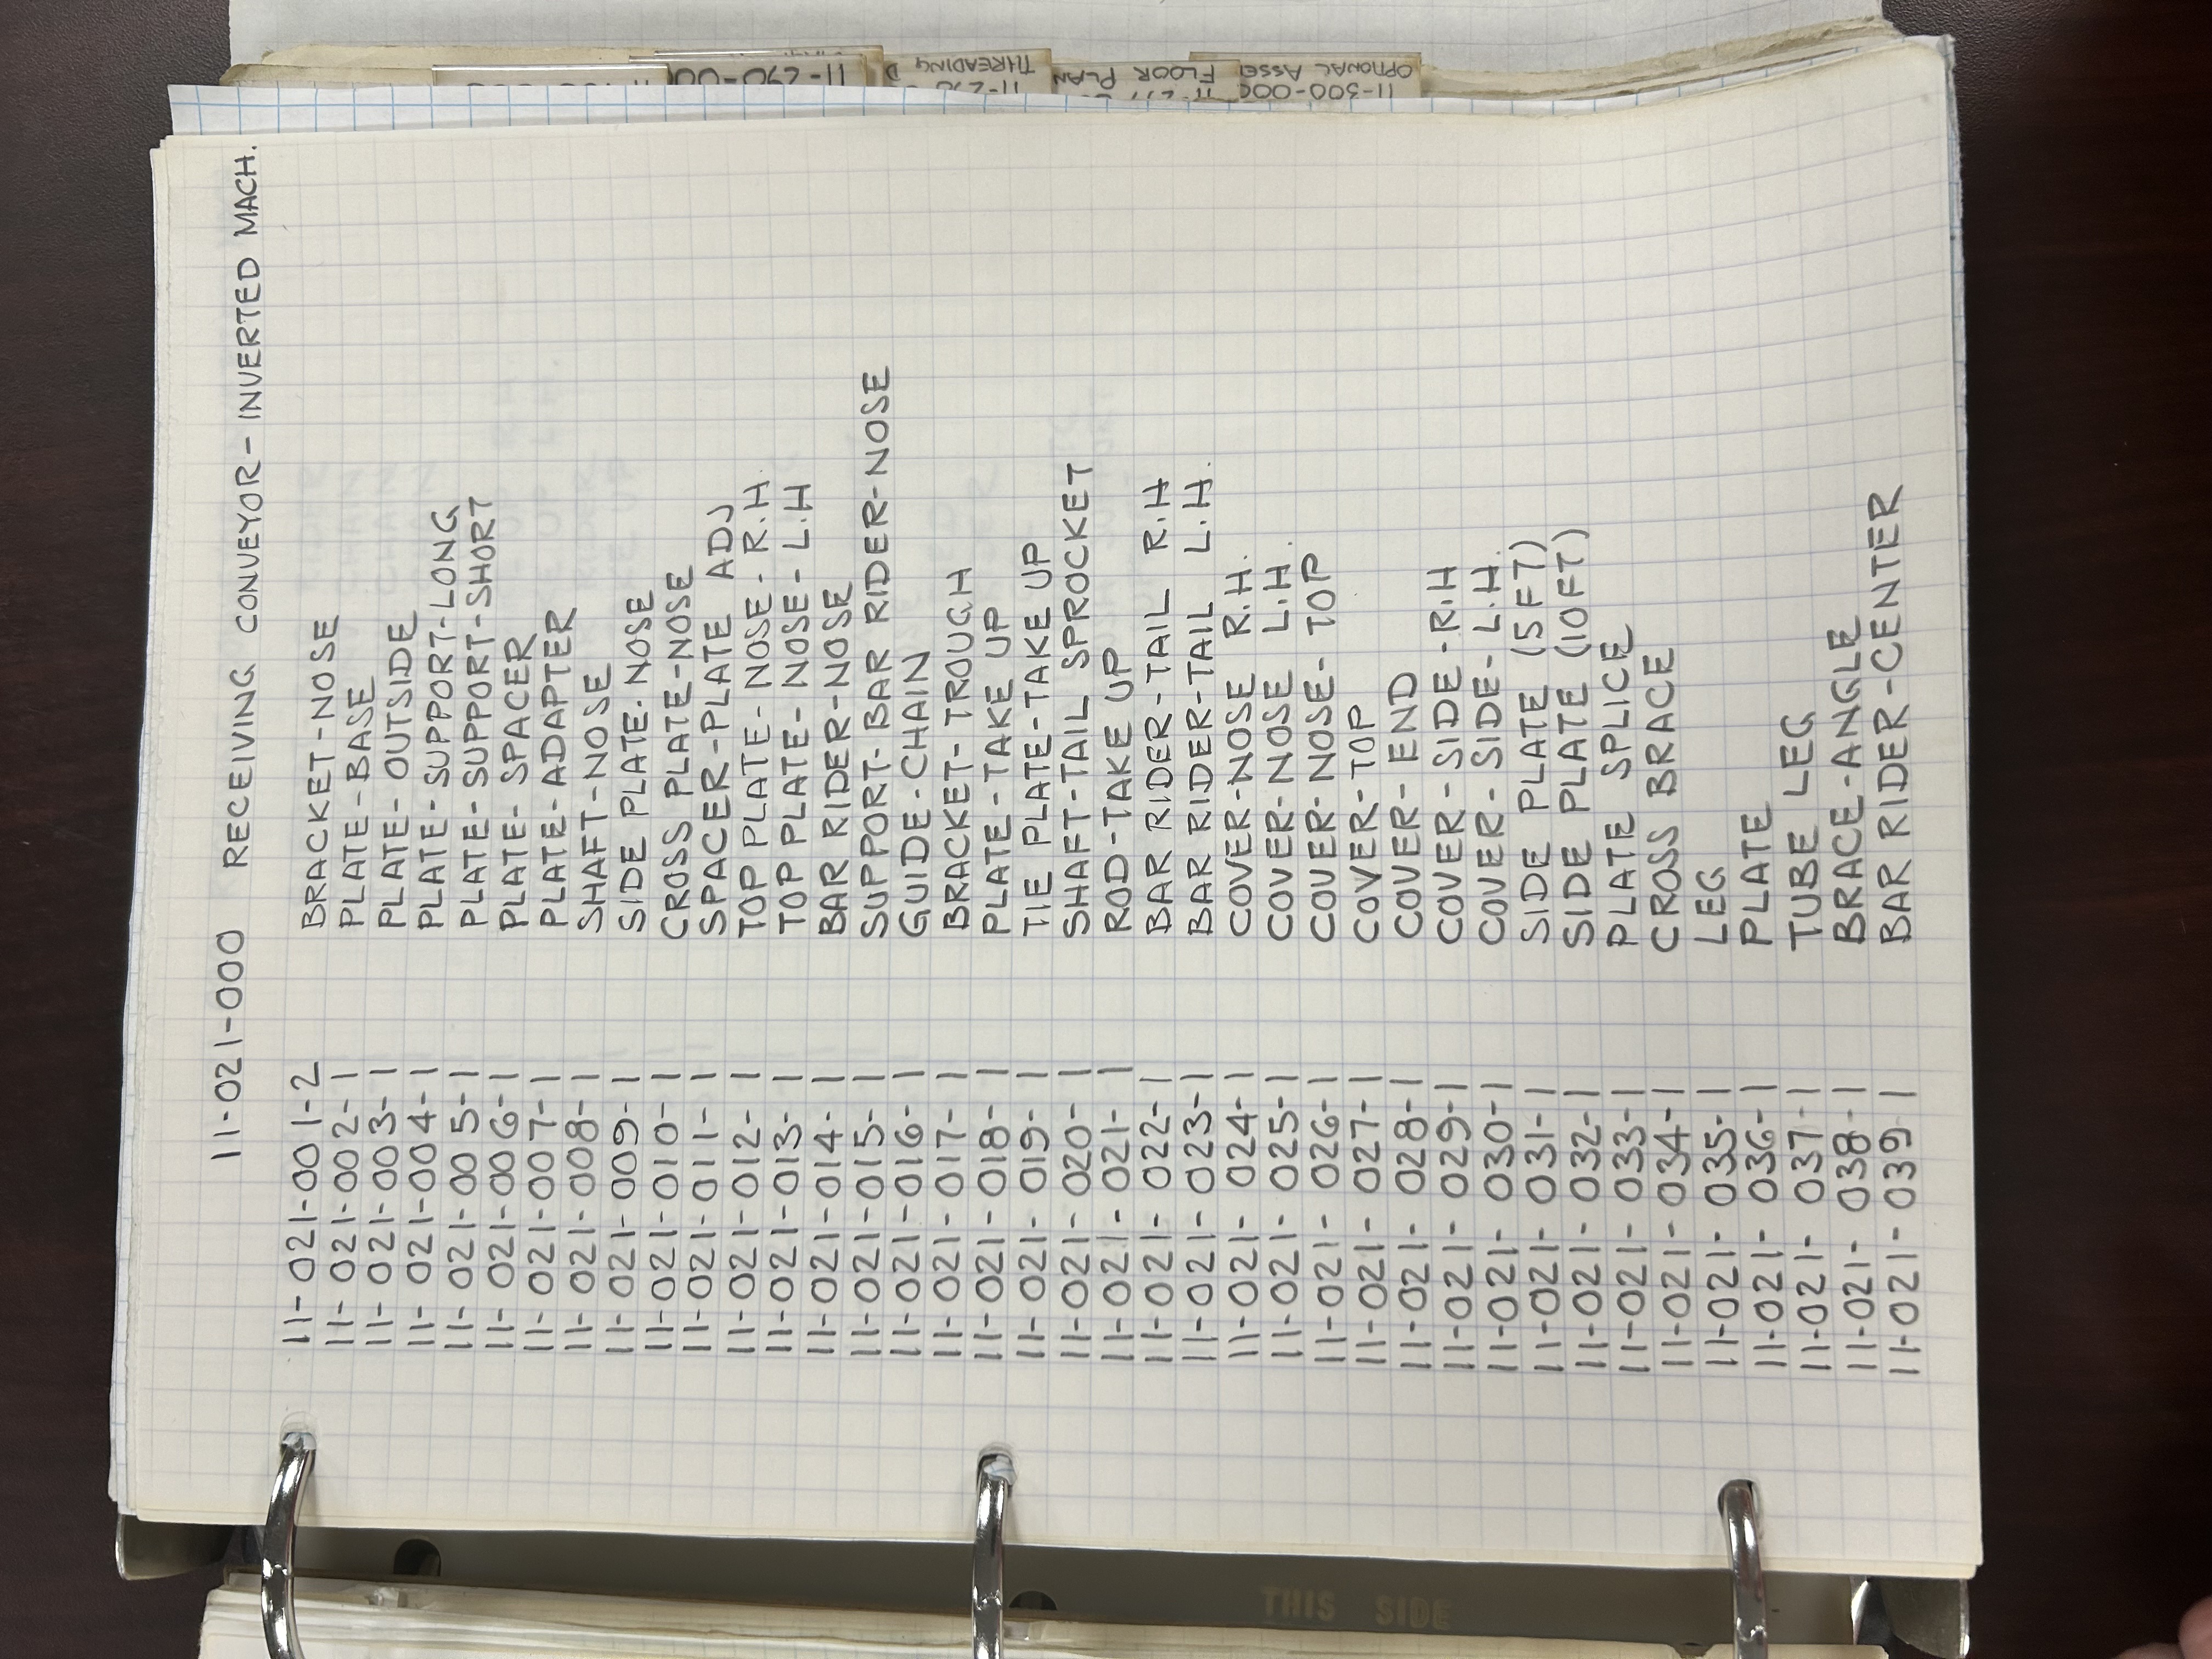 11-021-000 RECEIVING CONVEYOR - INVERTED MACH.
11-021-001-2 BRACKET-NOSE
11-021-002-1 PLATE-BASE
11-021-003-1 PLATE-OUTSIDE
11-021-004-1 PLATE-SUPPORT-LONG
11-021-005-1 PLATE-SUPPORT-SHORT
11-021-006-1 PLATE-SPACER
11-021-007-1 PLATE-ADAPTER
11-021-008-1 SHAFT-NOSE
11-021-009-1 SIDE PLATE-NOSE
11-021-010-1 CROSS PLATE-NOSE
11-021-011-1 SPACER-PLATE ADJ
11-021-012-1 TOP PLATE-NOSE-R.H.
11-021-013-1 TOP PLATE-NOSE-L.H
11-021-014-1 BAR RIDER-NOSE
11-021-015-1 SUPPORT-BAR RIDER-NOSE
11-021-016-1 GUIDE-CHAIN
11-021-017-1 BRACKET-TROUGH
11-021-018-1 PLATE-TAKE UP
11-021-019-1 TIE PLATE-TAKE UP
11-021-020-1 SHAFT-TAIL SPROCKET
11-021-021-1 ROD-TAKE UP
11-021-022-1 BAR RIDER-TAIL R.H
11-021-023-1 BAR RIDER-TAIL L.H.
11-021-024-1 COVER-NOSE R.H.
11-021-025-1 COVER-NOSE L.H.
11-021-026-1 COVER-NOSE-TOP
11-021-027-1 COVER-TOP
11-021-028-1 COVER-END
11-021-029-1 COVER-SIDE-R.H
11-021-030-1 COVER-SIDE-L.H.
11-021-031-1 SIDE PLATE (5FT)
11-021-032-1 SIDE PLATE (10FT)
11-021-033-1 PLATE SPLICE
11-021-034-1 CROSS BRACE
11-021-035-1 LEG
11-021-036-1 PLATE
11-021-037-1 TUBE LEG
11-021-038-1 BRACE-ANGLE
11-021-039 1 BAR RIDER-CENTER
THREADING
FLOOR PLAN
11-300-000
OPTIONAL
THIS SIDE